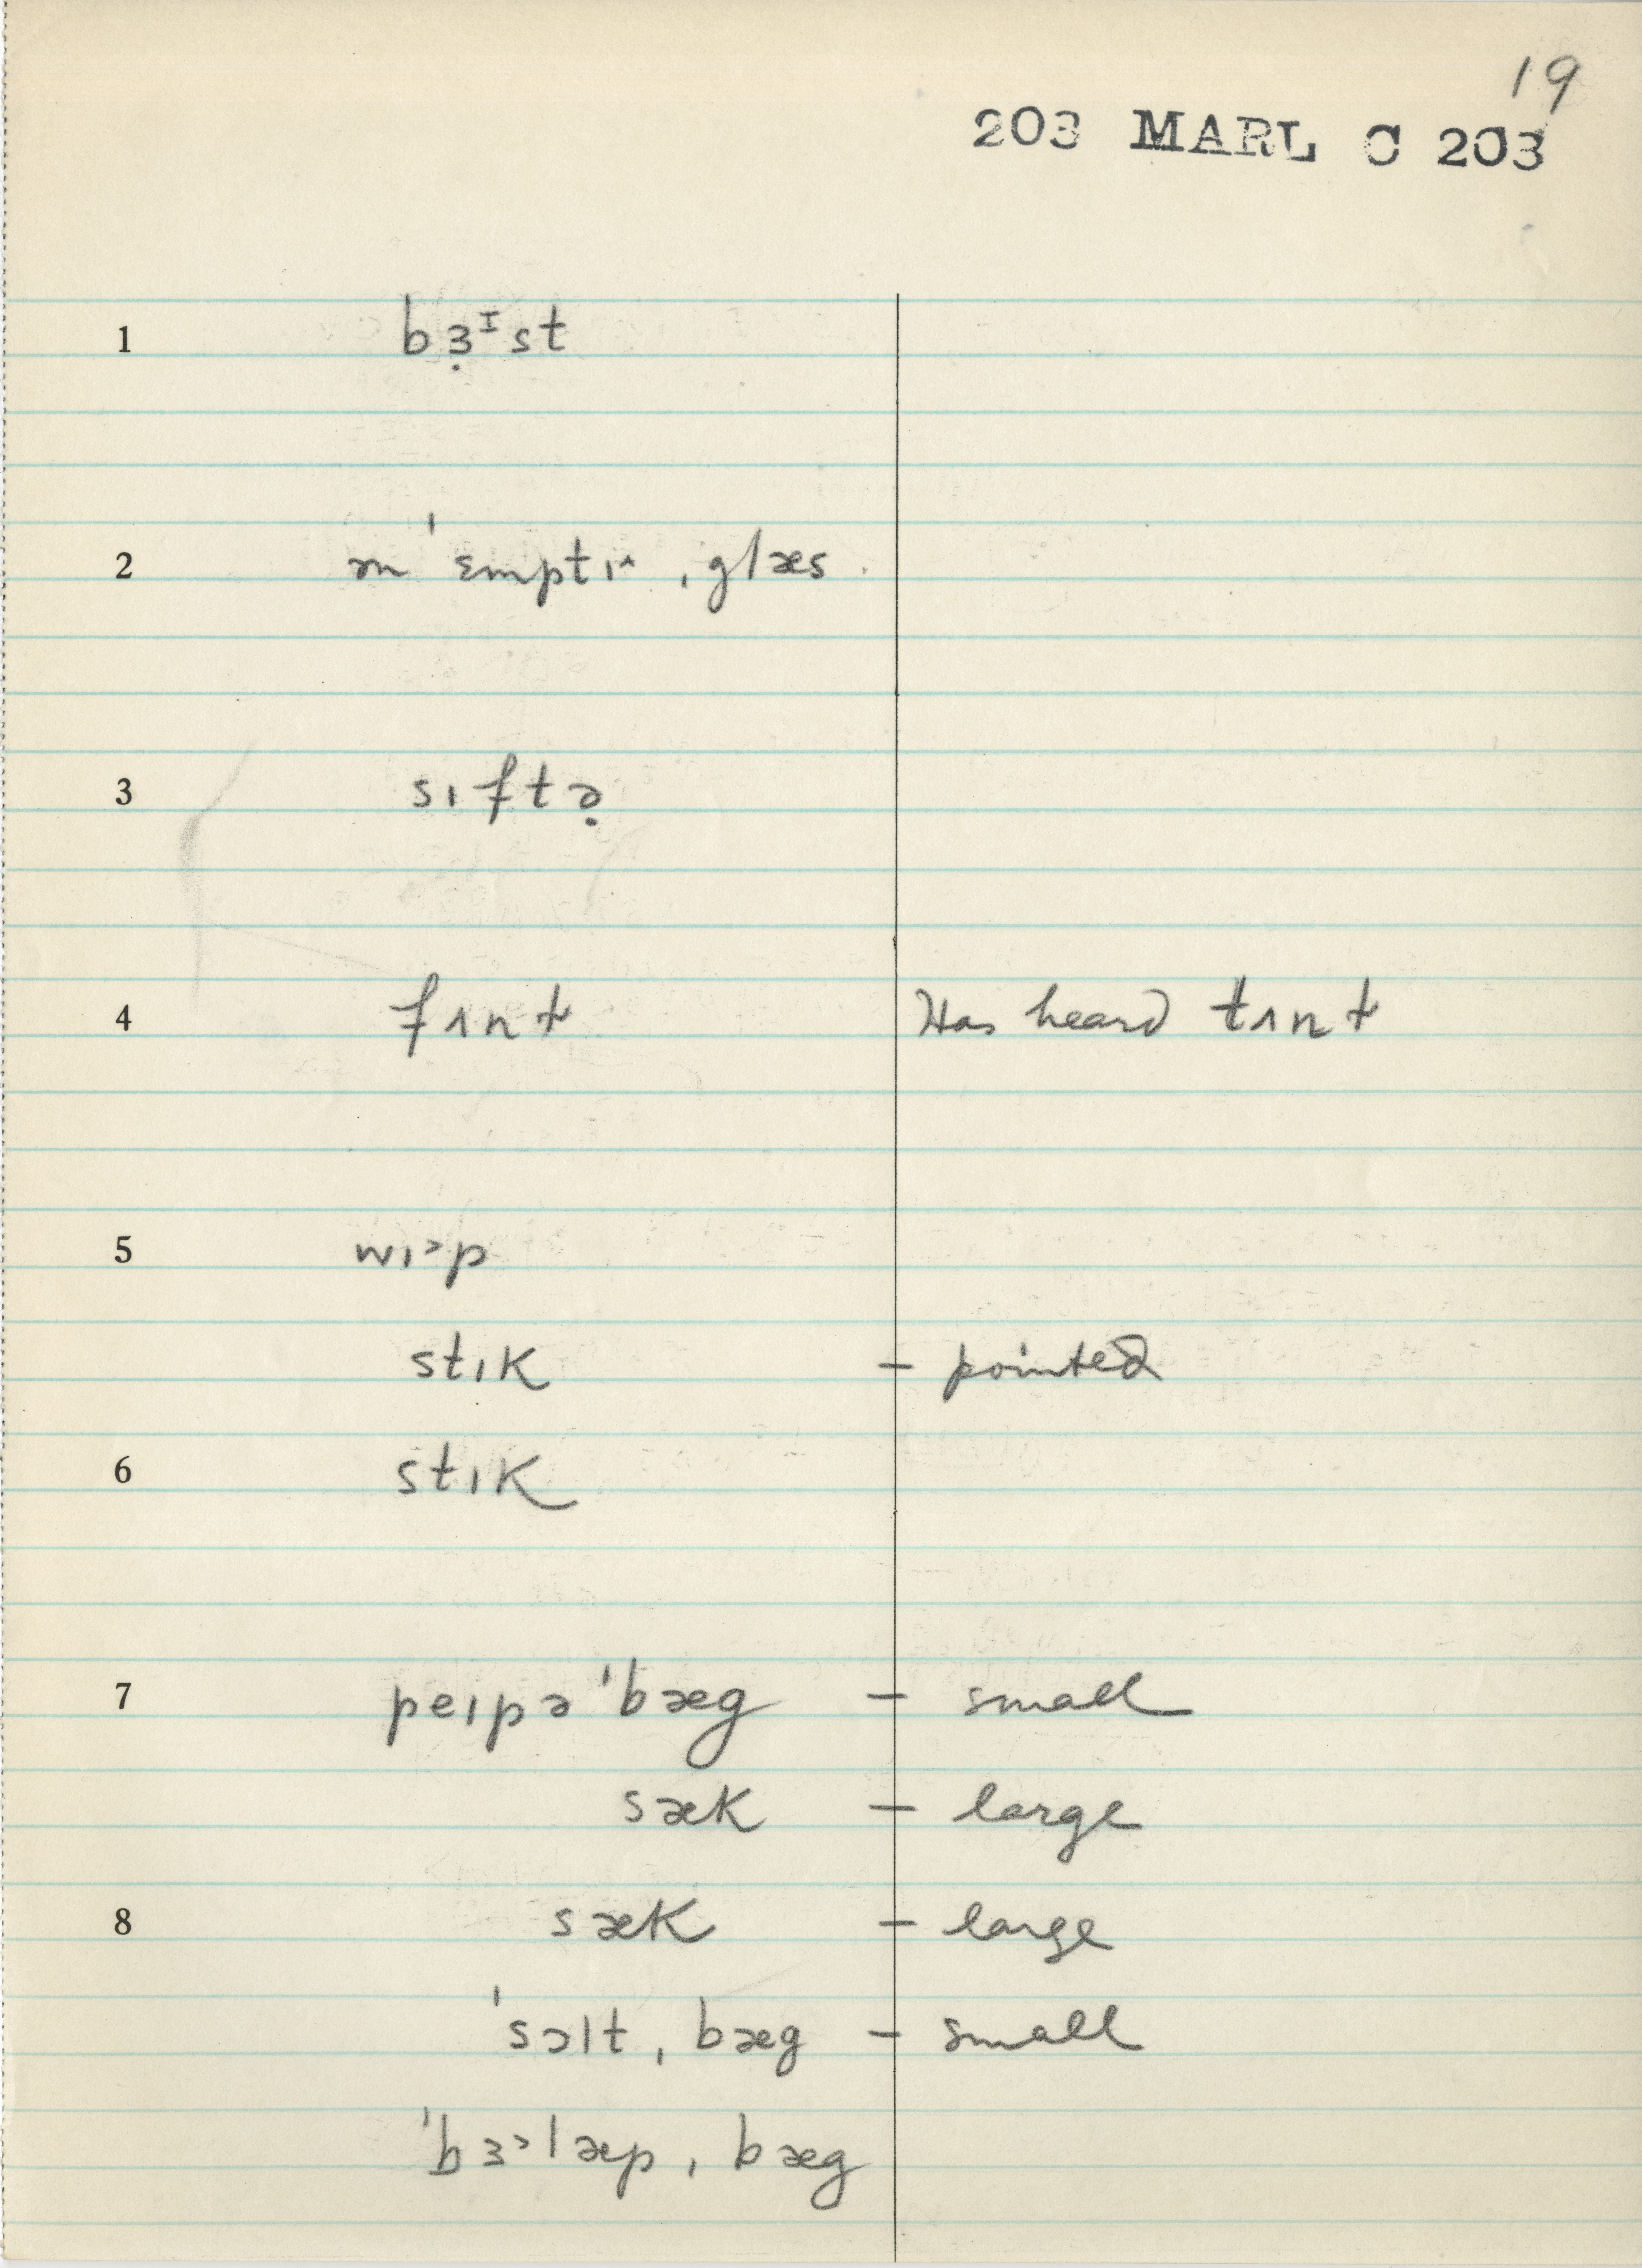 19
203 MARL C 203
1 bɜ̣ᴵst
2 ən ˈɛmptɪ˄ ˌglæs
3 sɪftə̣
4 fʌnɫ Has heard tʌnɫ
5 wɪ˃p
stɪk – pointed
6 stɪk
7 peɪpə ˈbæg – small
sæk – large
8 sæk – large
ˈsɔlt ˌbæg – small
ˈbɜ˃læp ˌbæg